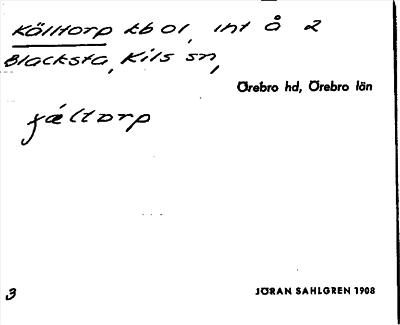 Källtorp tb 01, int Å 2
Blacksta, Kils sn,
Örebro hd, Örebro län
fältorp
3
JÖRAN SAHLGREN 1908